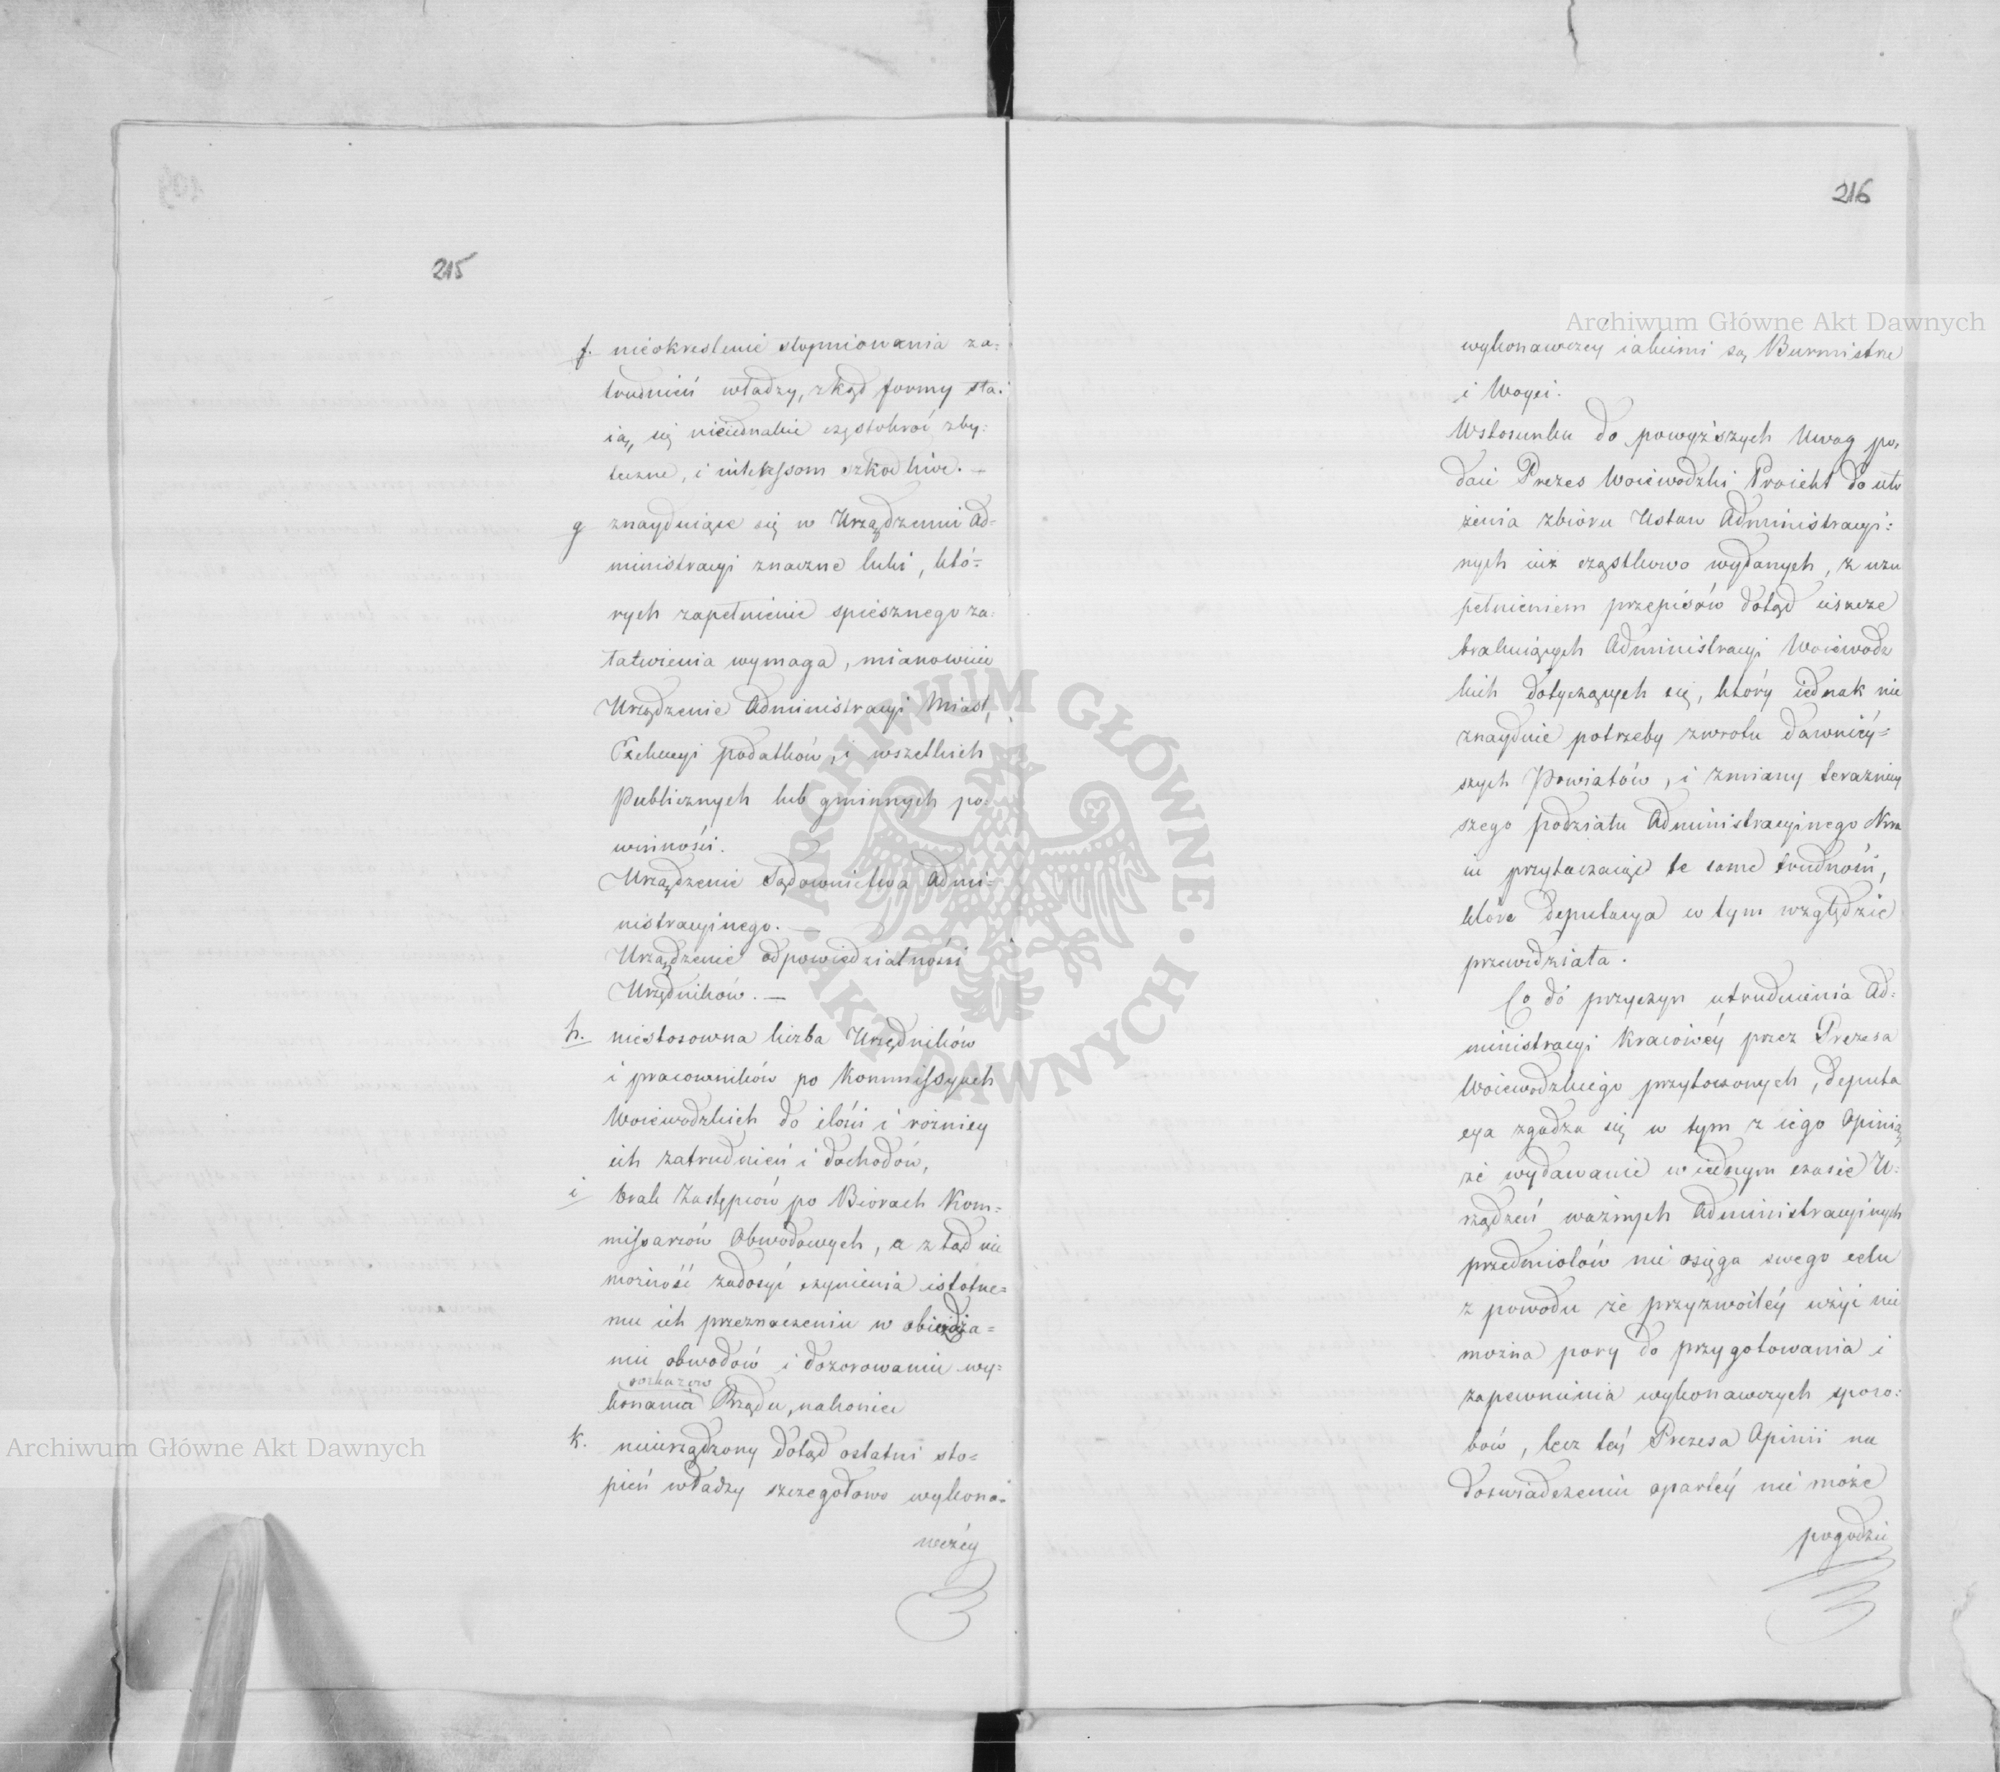 215
f. nieokreslenie stopniowania za=
trudnień władzy, zkąd formy sta=
ią, się nieiednakie częstokroć zby=
teczne, i interessom szkodliwe. —
g znayduiące się w Urządzeniu Ad=
ministracyi znaczne luki, któ=
rych zapełnienie spiesznego za=
łatwienia wymaga, mianowicie
Urządzenie Administracyi Miast,
Exekucyi podatków, i wszelkich
Publicznych lub gminnych po=
winności.
Urządzenie Sądownictwa Admi=
nistracyinego. —
Urządzenie odpowiedzialności
Urzędników. —
h. niestosowna liczba Urzędników
i pracowników po Kommissyach
Woiewodzkich do ilości i rożnicy
ich zatrudnień i dochodów,
i brak Zastępców po Biórach Kom=
missarzów Obwodowych, a z tąd nie
możność zadosyć czynienia istotne=
mu ich przeznaczeniu w obieżdża=
niu obwodów i dozorowaniu wy=
rozkazow
konania Rządu, nakoniec
k. nieurządzony dotąd ostatni sto=
pień władzy szczegołowo wykona=
wczéy
216
wykonawczey iakiemi są Burmistrze
i Woyci.
Wstosunku do powyższych Uwag po,
daie Prezes Woiewodzki Proiekt do uło
żenia zbioru Ustaw Administracyi=
nych iuż cząstkowo wydanych, z uzu
pełnieniem przepisów dotąd ieszcze
brakuiących Administracyi Woiewodz
kich dotyczących się, który iednak nie
znayduie potrzeby zwrotu dawniéy=
szych Powiatów, i zmiany teraźniey
szego podziału Administracyinego Kra
iu przytaczaiąc te same trudności,
które deputacya w tym względzie
przewidziała.
Co do przyczyn utrudnienia Ad=
ministracyi Kraiowéy przez Prezesa
Woiewodzkiego przytoczonych, deputa
cya zgadza się w tym z iego Opinią
że wydawanie w iednym czasie U=
rządzeń ważnych Administracyinych
przedmiotów nie osięga swego celu
z powodu że przyzwoitéy użyć nie
można pory do przygotowania i
zapewnienia wykonawczych sposo=
bów, lecz téy Prezesa Opinii na
doswiadczeniu opartéy nie może
pogodzić
Archiwum Główne Akt Dawnych
Archiwum Główne Akt Dawnych
ARCHIWUM GŁÓWNE · AKT DAWNYCH ·